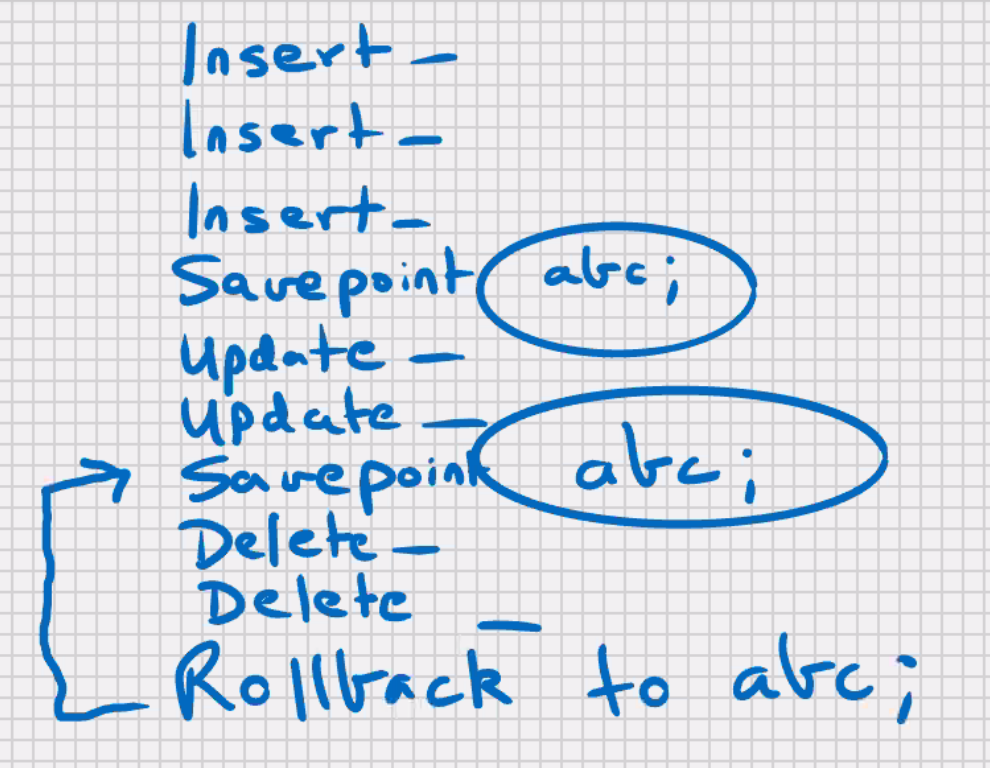 Insert —
Insert —
Insert —
Savepoint abc;
Update —
Update —
Savepoint abc;
Delete —
Delete —
Rollback to abc;